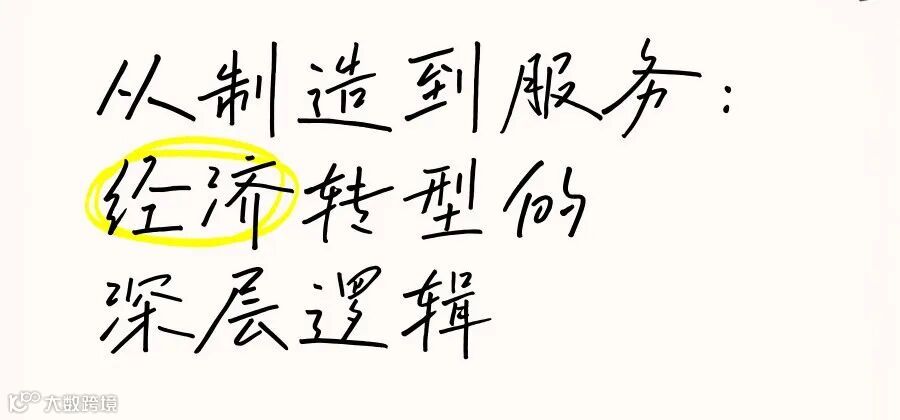 从制造到服务：
经济转型的
深层逻辑
大数跨境